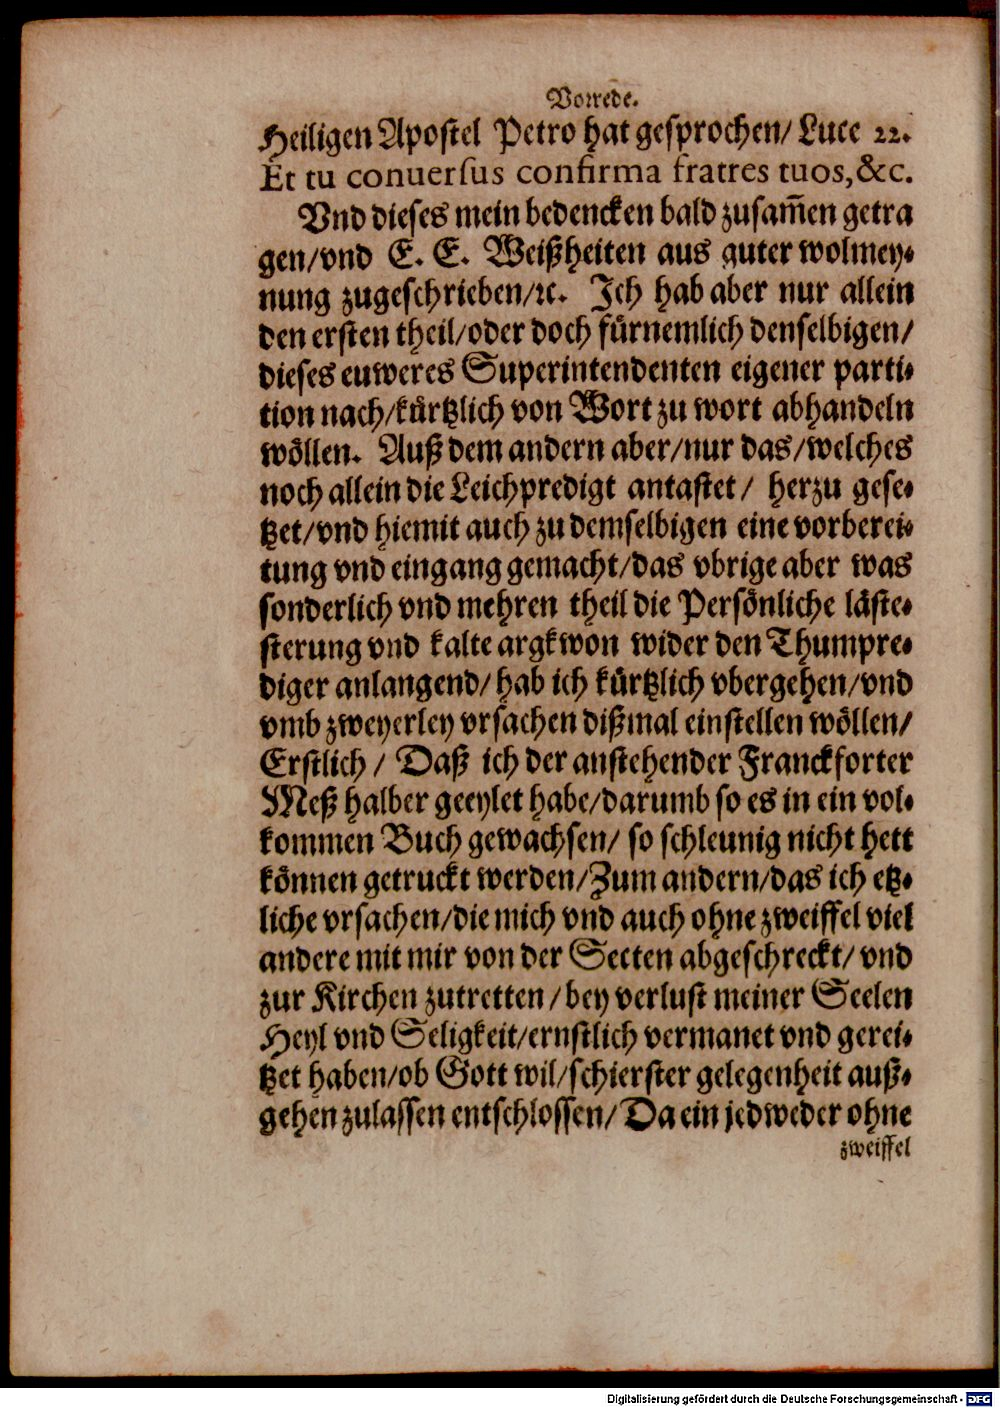 Vorrede.
Heiligen Apostel Petro hat gesprochen/ Luce 22.
Et tu conuersus confirma fratres tuos, &c.
Vnd dieses mein bedencken bald zusam̃en getra
gen/vnd E. E. Weißheiten aus guter wolmey⸗
nung zugeschrieben/ꝛc. Ich hab aber nur allein
den ersten theil/oder doch fürnemlich denselbigen/
dieses euweres Superintendenten eigener parti⸗
tion nach/kürtzlich von Wort zu wort abhandeln
wöllen. Auß dem andern aber/nur das/welches
noch allein die Leichpredigt antastet/ herzu gese⸗
tzet/vnd hiemit auch zu demselbigen eine vorberei⸗
tung vnd eingang gemacht/das vbrige aber was
sonderlich vnd mehren theil die Persönliche läste⸗
sterung vnd kalte argkwon wider den Thumpre⸗
diger anlangend/hab ich kürtzlich vbergehen/vnd
vmb zweyerley vrsachen dißmal einstellen wöllen/
Erstlich/ Daß ich der anstehender Franckforter
Meß halber geeylet habe/darumb so es in ein vol⸗
kommen Buch gewachsen/ so schleunig nicht hett
können getruckt werden/Zum andern/das ich etz⸗
liche vrsachen/die mich vnd auch ohne zweiffel viel
andere mit mir von der Secten abgeschreckt/vnd
zur Kirchen zutretten/bey verlust meiner Seelen
Heyl vnd Seligkeit/ernstlich vermanet vnd gerei⸗
tzet haben/ob Gott wil/schierster gelegenheit auß⸗
gehen zulassen entschlossen/Da ein jedweder ohne
zweiffel
Digitalisierung gefördert durch die Deutsche Forschungsgemeinschaft - DFG